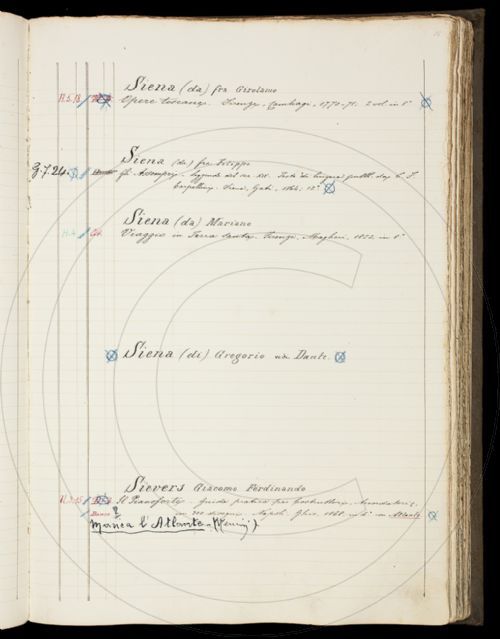 Siena (da) fra Girolamo
H.5.18. Opere toscane. Firenze, Cambiagi, 1770-71. 2 vol. in 8°
Siena (da) fra Filippo
G.7.24. Gli Assempri. Leggende del sec. XIV. Testo di lingua pubbl. dap. C. F.
Carpellini. Siena, Gati, 1864. 12°
Siena (da) Mariano
Viaggio in Terra Santa. Firenze, Magheri, 1822 in 8°
Siena (di) Gregorio v. Dante.
Sievers Giacomo Ferdinando
Il Pianoforte - Guida pratica per Costruttori, Accordatori,
in disegni. Napoli, Ghio, 1868. in 8° Atlante
?
Manca l'Atlante.